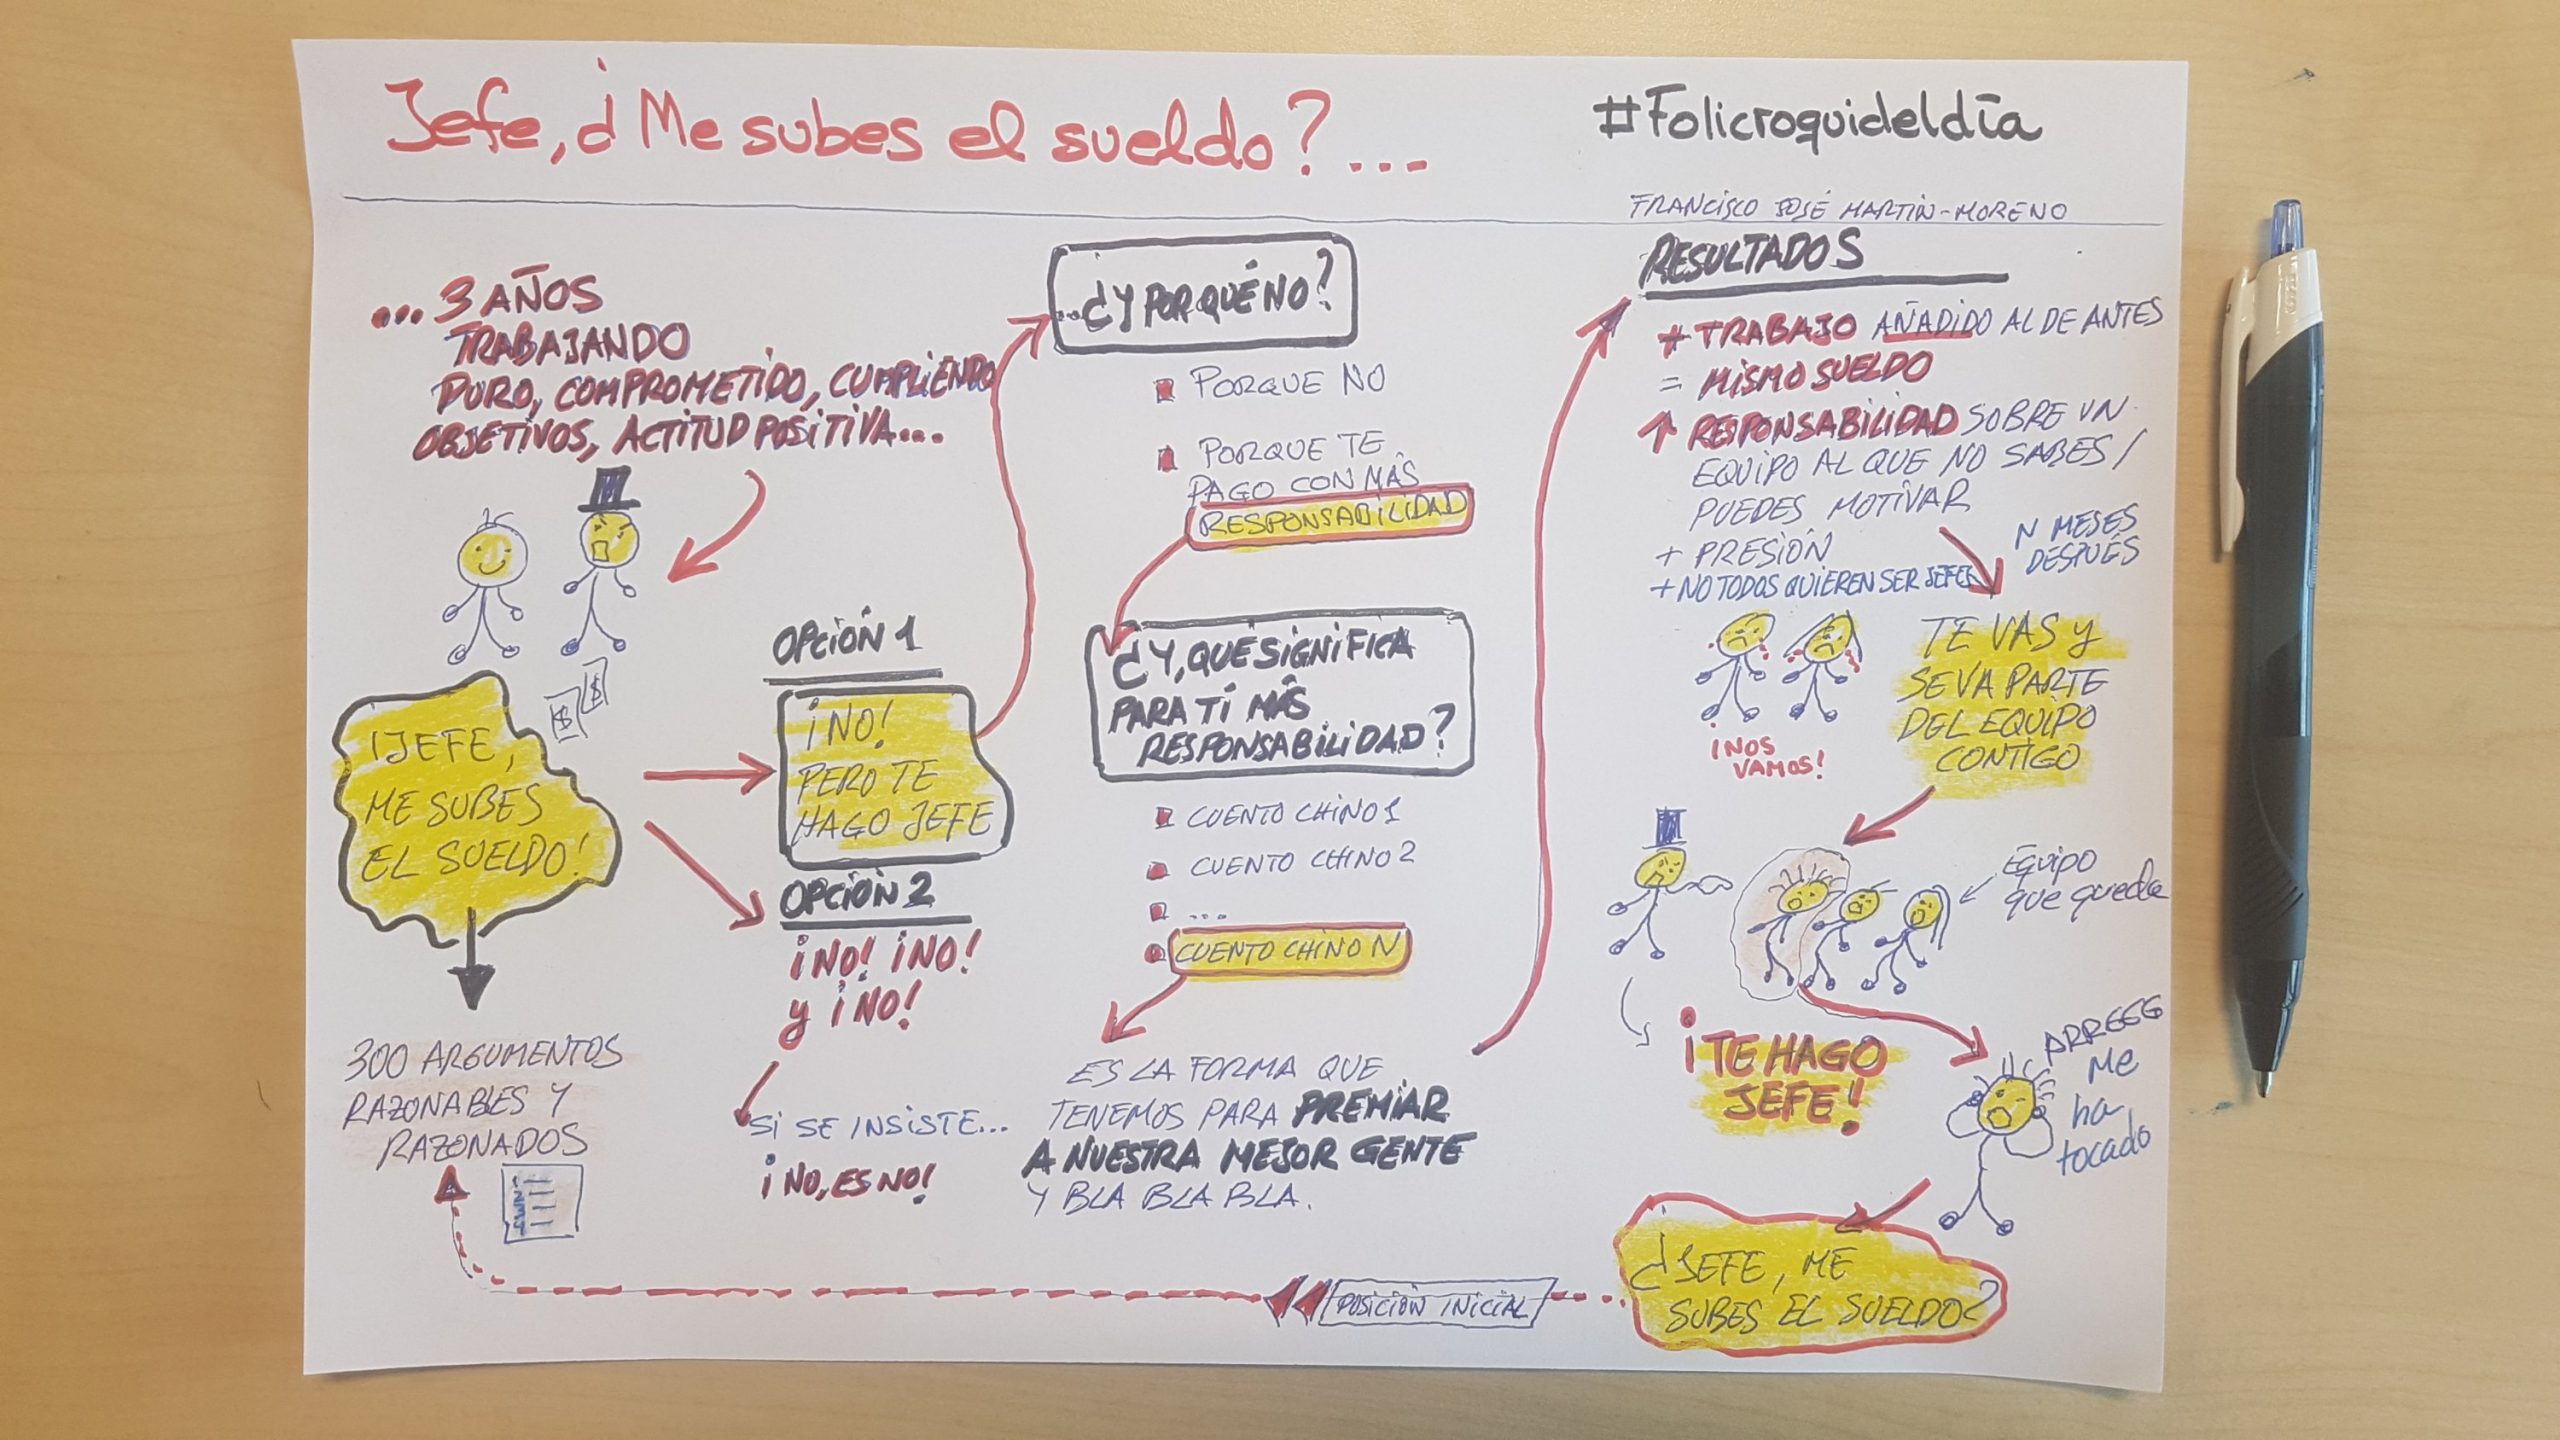 Jefe, ¿Me subes el sueldo?...
#Folicroquideldía
FRANCISCO JOSÉ MARTIN-MORENO
... 3 AÑOS
TRABAJANDO
DURO, COMPROMETIDO, CUMPLIENDO
OBJETIVOS, ACTITUD POSITIVA...
$
$
¡JEFE,
ME SUBES
EL SUELDO!
300 ARGUMENTOS
RAZONABLES Y
RAZONADOS
OPCIÓN 1
¡NO!
PERO TE
HAGO JEFE
OPCIÓN 2
¡NO! ¡NO!
y ¡NO!
SI SE INSISTE...
¡NO, ES NO!
...¿Y POR QUÉ NO?
PORQUE NO
PORQUE TE
PAGO CON MÁS
RESPONSABILIDAD
¿Y, QUÉ SIGNIFICA
PARA TÍ MÁS
RESPONSABILIDAD?
CUENTO CHINO 1
CUENTO CHINO 2
...
CUENTO CHINO N
ES LA FORMA QUE
TENEMOS PARA PREMIAR
A NUESTRA MEJOR GENTE
Y BLA BLA BLA.
RESULTADOS
+ TRABAJO AÑADIDO AL DE ANTES
= MISMO SUELDO
↑ RESPONSABILIDAD SOBRE UN
EQUIPO AL QUE NO SABES/
PUEDES MOTIVAR
+ PRESIÓN
+ NO TODOS QUIEREN SER JEFES
N MESES
DESPUÉS
TE VAS Y
SE VA PARTE
DEL EQUIPO
CONTIGO
¡NOS
VAMOS!
EQUIPO
que queda
¡TE HAGO
JEFE!
ARREGG
Me
ha
tocado
¿JEFE, ME
SUBES EL SUELDO?
POSICIÓN INICIAL